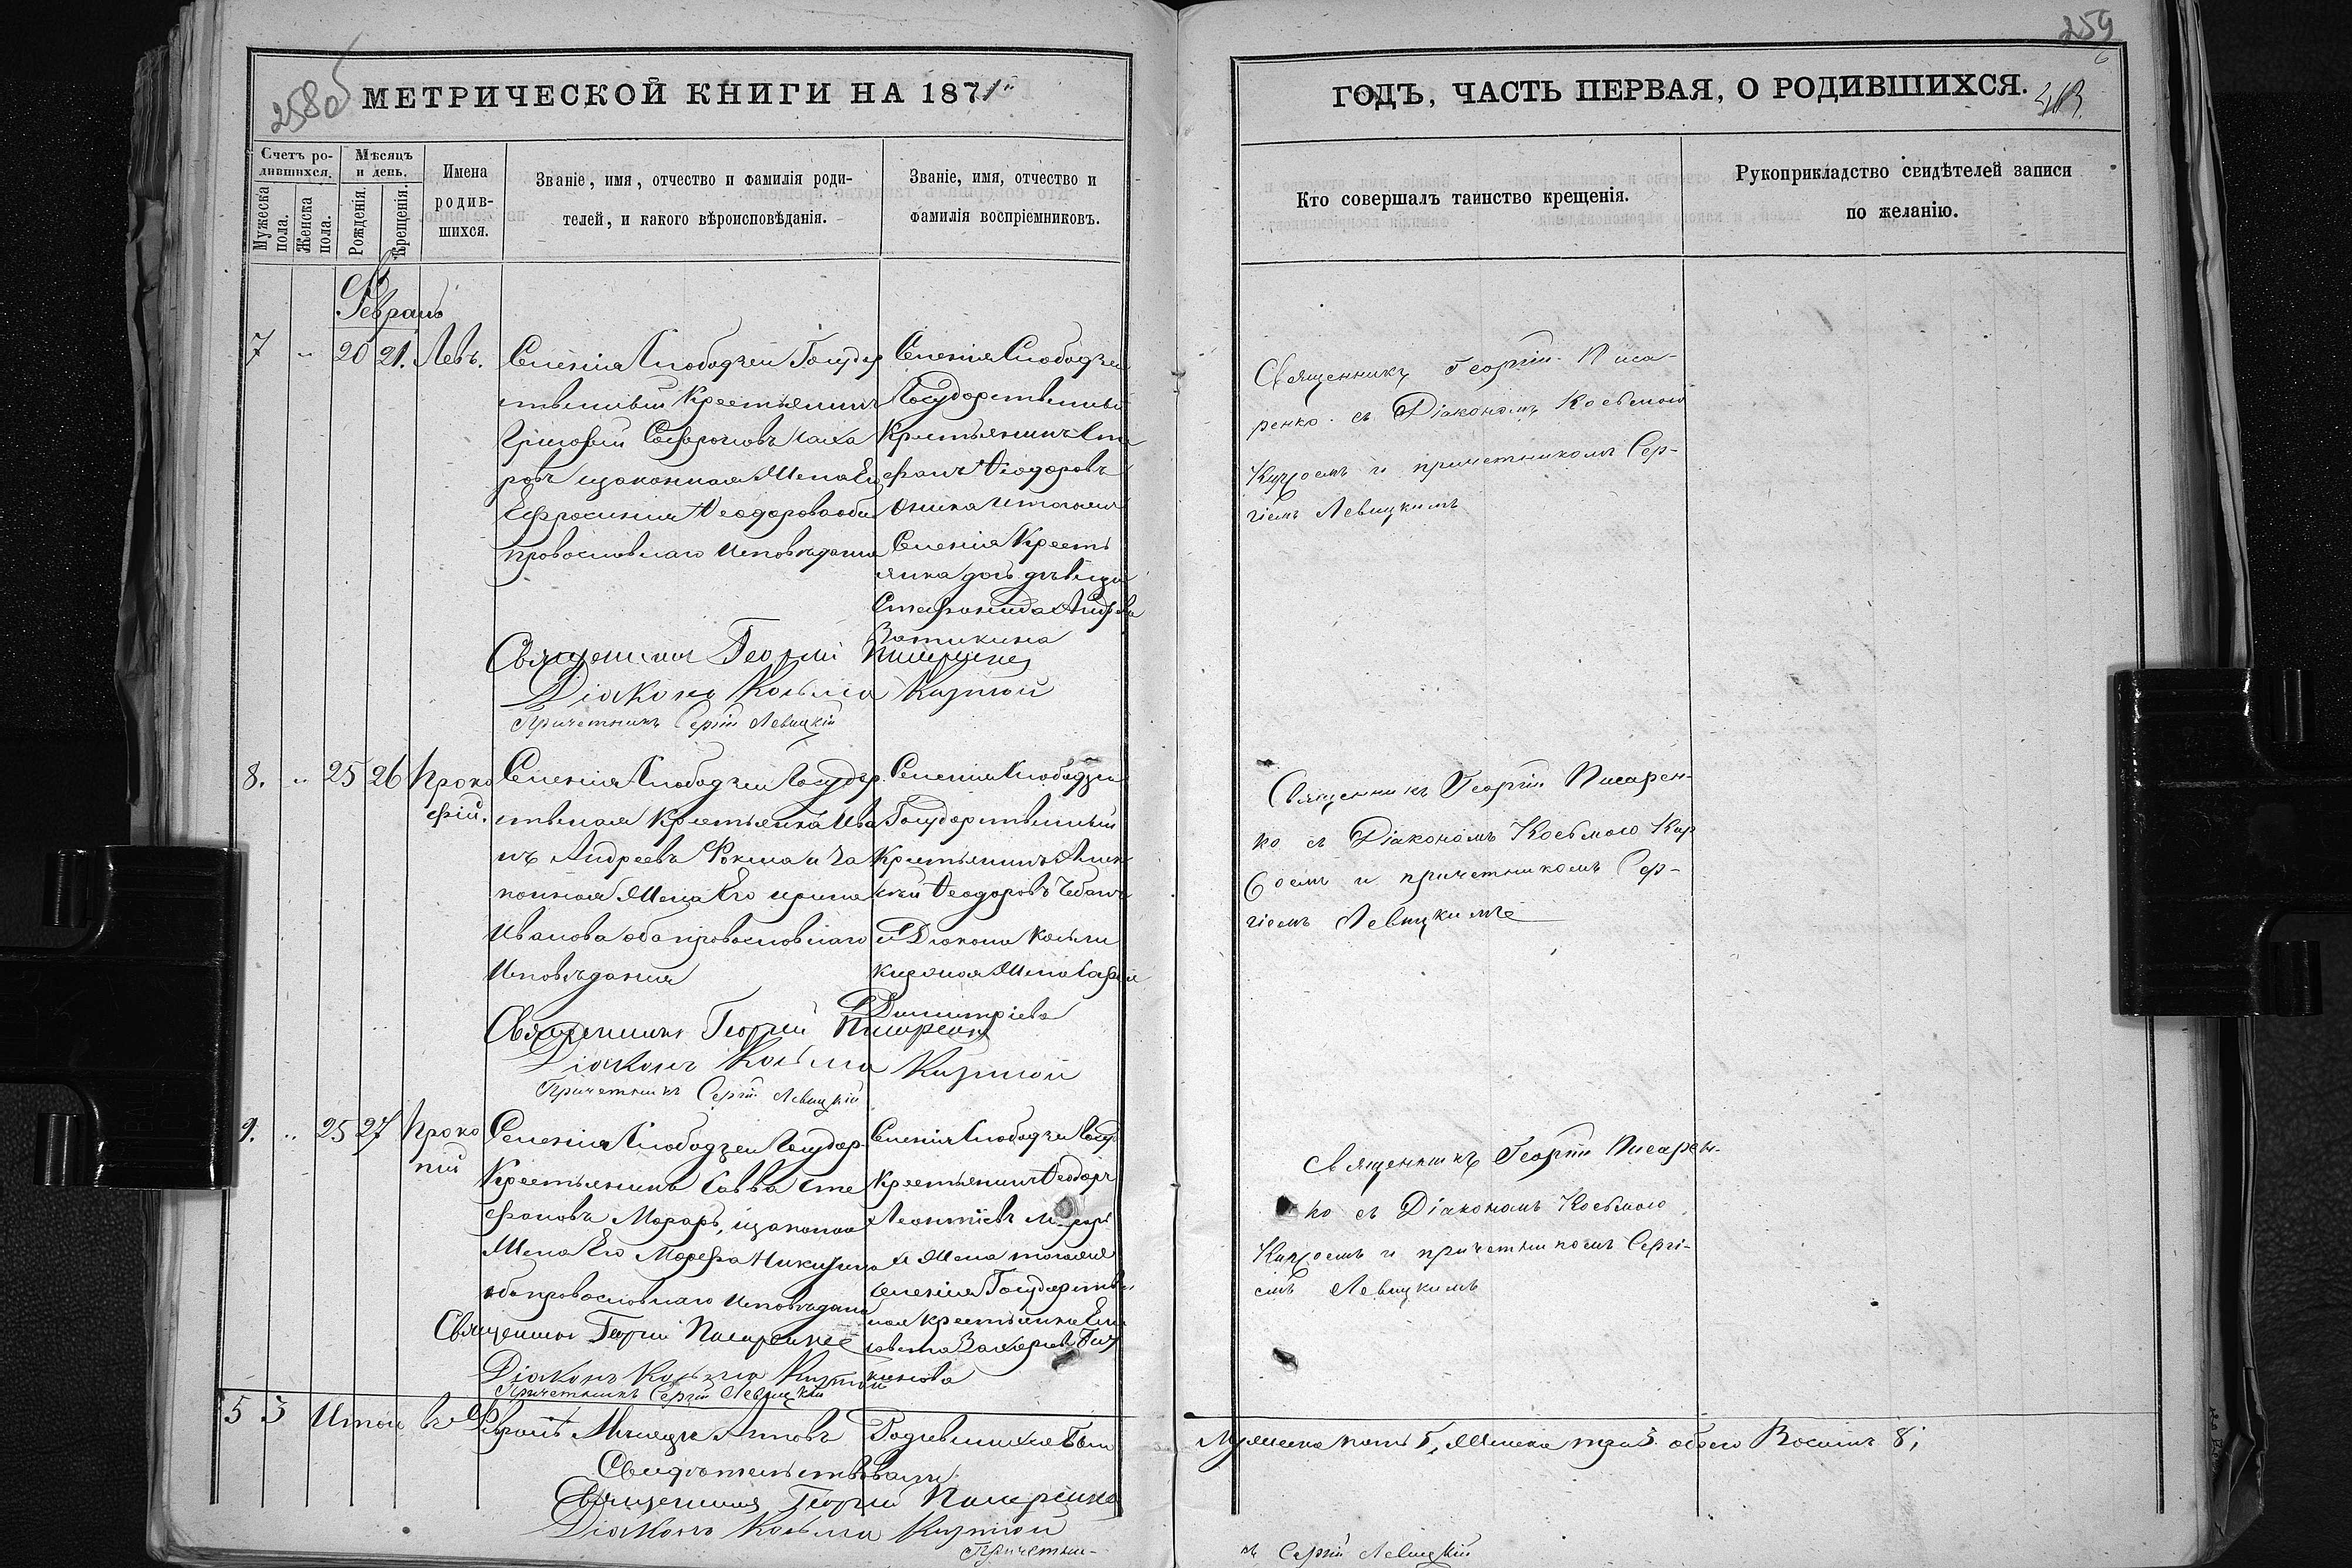 258об
МЕТРИЧЕСКОЙ КНИГИ НА 1871
Счетъ ро-
дившихся.
Мужеска
пола.
Женска
пола.
Мѣсяцъ
и день.
Рожденія.
Крещенія.
Имена
родив-
шихся.
Званіе, имя, отчество и фамилія роди-
телей, и какого вѣроисповѣданія.
Званіе, имя, отчество и
фамилія воспріемниковъ.
Февраль
7 „ 20 21. Левъ.
Селенія Слободзеи Государ
ственный Крестьянинъ
Григорій
законная Жена Ег
Ефросинія Ѳеодорова оба
православнаго Исповѣданія
Селенія Слободзеи
Государственный
Крестьянинъ Сте
фанъ Ѳеодоровъ
и тогоже
Селенія Кресть
янка дочь дѣвица
Стефанида
Священникъ Георгій Писаренко
Діаконъ Косьма
Причетникъ Сергій Левицкій
8. „ 25 26 Проко
фій.
Селенія Слободзеи Государ
ственная Крестьянка Ива
нъ Андреевъ Фокша и За
конная Жена Его Ирина
Иванова оба православнаго
Исповѣданія
Селенія Слободзеи
Государственный
Крестьянинъ Алек
сѣй Ѳеодоровъ Чебанъ
и Діакона Косьми
Жена
Димитріева
Священникъ Георгій Писаренко
Діаконъ Косьма
Причетникъ Сергій Левицкій
9. „ 25 27 Проко
пій
Селенія Слободзеи Государ
Крестьянинъ Савва Сте
фановъ Мораръ, и законая
Жена Его Марфа Никитина
оба православнаго Исповѣданія
Селенія Слободзеи Госуд
Крестьянинъ Ѳеодоръ
Леонтіевъ
и Жена тогоже
Селенія Государстве
ная крестьянка Ели
савета
Священникъ Георгій Писаренко
Діаконъ Косьма
Причетникъ Сергій Левицкій
5 3 Итого въ Февралѣ Мѣсяцѣ Родившихся Было
Свидѣтельствовали
Священникъ Георгій Писаренко
Діаконъ Косьма
Причетни-
259
ГОДЪ, ЧАСТЬ ПЕРВАЯ, О РОДИВШИХСЯ.
Кто совершалъ таинство крещенія.
Рукоприкладство свидѣтелей записи
по желанію.
Священникъ Георгій Писа-
ренко съ Діакономъ Косьмою
и причетникомъ Сер-
гіемъ Левицкимъ
Священникъ Георгій Писарен-
ко съ Діакономъ Косьмою
и причетникомъ Сер-
гіемъ Левицкимъ
Священникъ Георгій Писарен-
ко съ Діакономъ Косьмою
и причетникомъ Сергі-
емъ Левицкимъ
Мужеска пять 5, Женска три 3 обоего Восимъ 8;
къ Сергій Левицкій